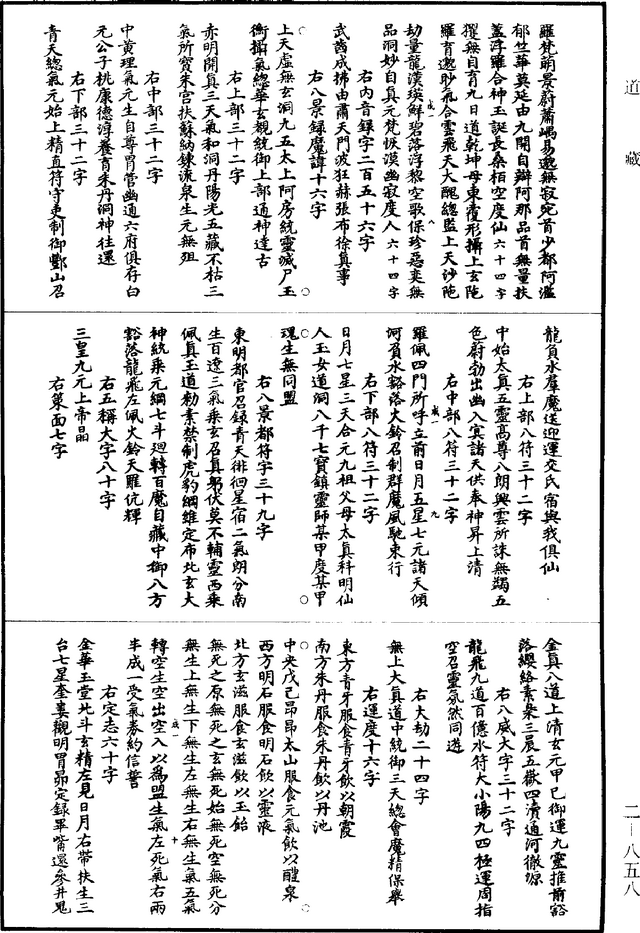 道藏
羅梵萌景蔚蕭嵎易邈無寂宛首少都阿濫
郁竺華莫延由九開自辯阿那品首無量扶
蓋浮羅合神玉誕長桑栢空度仙六十四字
擢無自育九日道乾坤母東覆形攝上玄陁
羅育邈眇氣合雲飛天大醜總監上天沙陁
劫量龍漢瑛鮮碧落浮黎空歌保珍惡奕無
品洞妙自真元梵恢漠幽寂度人六十四字
右內音錄字二百五十六字
武茜成拂由肅天門波狂赫張布徐真事
右八景錄魔諱十六字
上天虛無玄洞九五太上阿房統靈城尸玉
衡攝氣總華玄覩統御上部通神達古
右上部三十二字
赤明開真三天氣和洞丹陽光五藏不枯三
氣所寳朱宫扶蘇納鍊流泉生元無殂
右中部三十二字
中黄理氣元生自尊胃管幽通六府俱存白
元公子桃康德淳養育朱丹洞神往還
右下部三十二字
青天總氣元始上精直符守吏制御酆山召
龍負水羣魔送迎運交氐宿與我俱仙
右上部八符三十二字
中始太真五靈高尊八朗興雲所誅無蠲五
色蔚勃出幽入冥諸天供奉神昇上清
右中部八符三十二字
羅佩四門所呼立前日月五星七元諸天傾
河負水豁落火鈴召制群魔風馳東行
右下部八符三十二字
日月七星三天合元九祖父母太真科明仙
人玉女道洞八千七寳鎮靈師某甲度某甲
瓌生無同盟
右八景都符字三十九字
東明都官召錄青天徘徊星宿二氣朗分南
生百遼三氣乘玄召真躬伏莫不輔靈西乘
佩真玉道勑素禁制虎豹綱維定布北玄大
神統乘元綱七斗迴轉百魔自藏中御八方
豁落龍飛左佩火鈴天羅伉輝
右五稱大字八十字
三皇九元上帝晶
右策面七字
金真八道上清玄元甲巳御運九靈推前豁
落纓絡素染三辰五嶽四瀆通河徹源
右八威大字三十二字
龍飛九道百億水符大小陽九四極運周指
空召靈炁然同遊
右大劫二十四字
無上大真道中統御三天總會魔精保舉
右運度十六字
東方青牙服食青牙飲以朝霞
南方朱丹服食朱丹飲以丹池
中央戊己昂昂太山服食元氣飲以醴泉
西方明石服食明石飲以靈液
北方玄滋服食玄滋飲以玉飴
無死之原無死之玄無死始無死空無死分
無生上無生下無生左無生右無生氣五氣
轉空生空出空入以爲盟生氣左死氣右兩
半成一受氣券約信誓
右定志六十字
金華玉堂北斗玄精左見日月右帶扶生三
台七星奎婁觀明胃昴定録畢觜還參井鬼
二—八五八